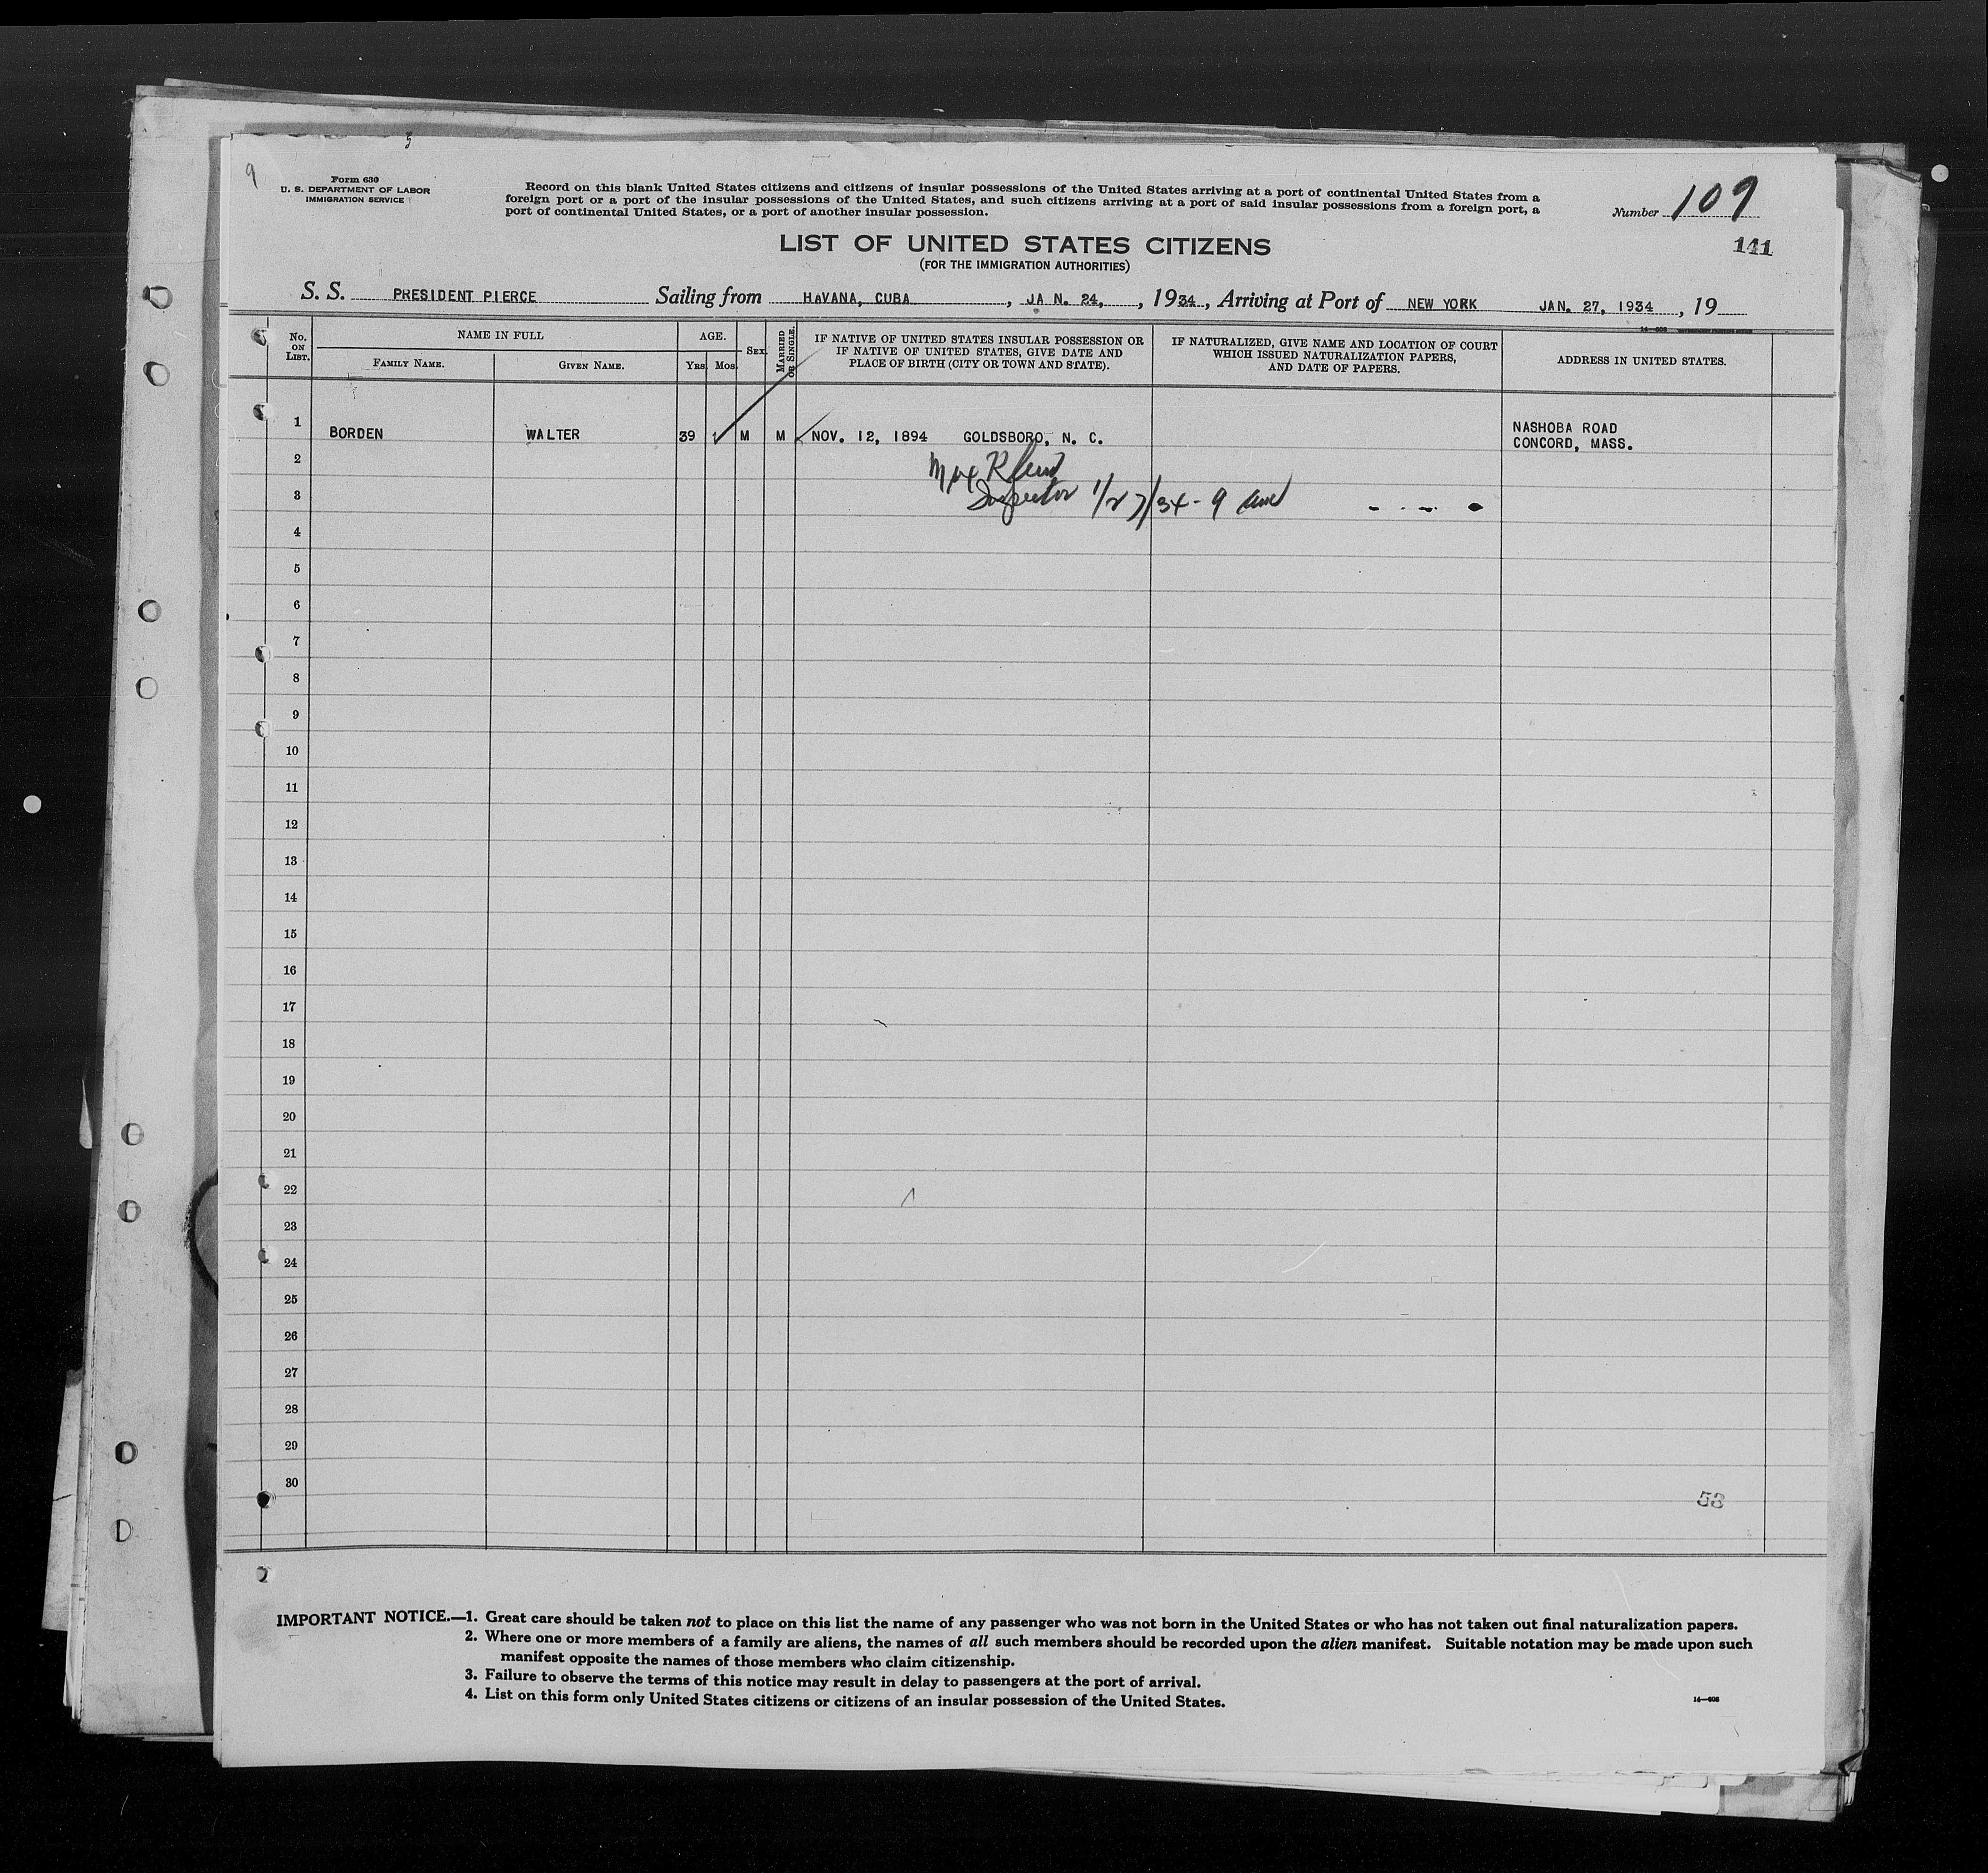 9
Form 630
U. S. DEPARTMENT OF LABOR
IMMIGRATION SERVICE
Record on this blank United States citizens and citizens of insular possessions of the United States arriving at a port of continental United States from a
foreign port or a port of the insular possessions of the United States, and such citizens arriving at a port of said insular possessions from a foreign port, a
port of continental United States, or a port of another insular possession.
Number 109
141
LIST OF UNITED STATES CITIZENS
(FOR THE IMMIGRATION AUTHORITIES)
S. S. PRESIDENT PIERCE Sailing from HAVANA, CUBA, JAN. 24, , 1934, Arriving at Port of NEW YORK JAN. 27, 1934, 19
No. ON LIST.
NAME IN FULL
FAMILY NAME. GIVEN NAME.
AGE.
Yrs. Mos.
SEX.
MARRIED OR SINGLE.
IF NATIVE OF UNITED STATES INSULAR POSSESSION OR
IF NATIVE OF UNITED STATES, GIVE DATE AND
PLACE OF BIRTH (CITY OR TOWN AND STATE).
IF NATURALIZED, GIVE NAME AND LOCATION OF COURT
WHICH ISSUED NATURALIZATION PAPERS,
AND DATE OF PAPERS.
ADDRESS IN UNITED STATES.
1 BORDEN WALTER 39 M M NOV. 12, 1894 GOLDSBORO, N. C. NASHOBA ROAD
CONCORD, MASS.
2 Max
3 Inspector 1/27/34 - 9
4
5
6
7
8
9
10
11
12
13
14
15
16
17
18
19
20
21
22
23
24
25
26
27
28
29
30
53
IMPORTANT NOTICE.—1. Great care should be taken not to place on this list the name of any passenger who was not born in the United States or who has not taken out final naturalization papers.
2. Where one or more members of a family are aliens, the names of all such members should be recorded upon the alien manifest. Suitable notation may be made upon such
manifest opposite the names of those members who claim citizenship.
3. Failure to observe the terms of this notice may result in delay to passengers at the port of arrival.
4. List on this form only United States citizens or citizens of an insular possession of the United States.
14—608